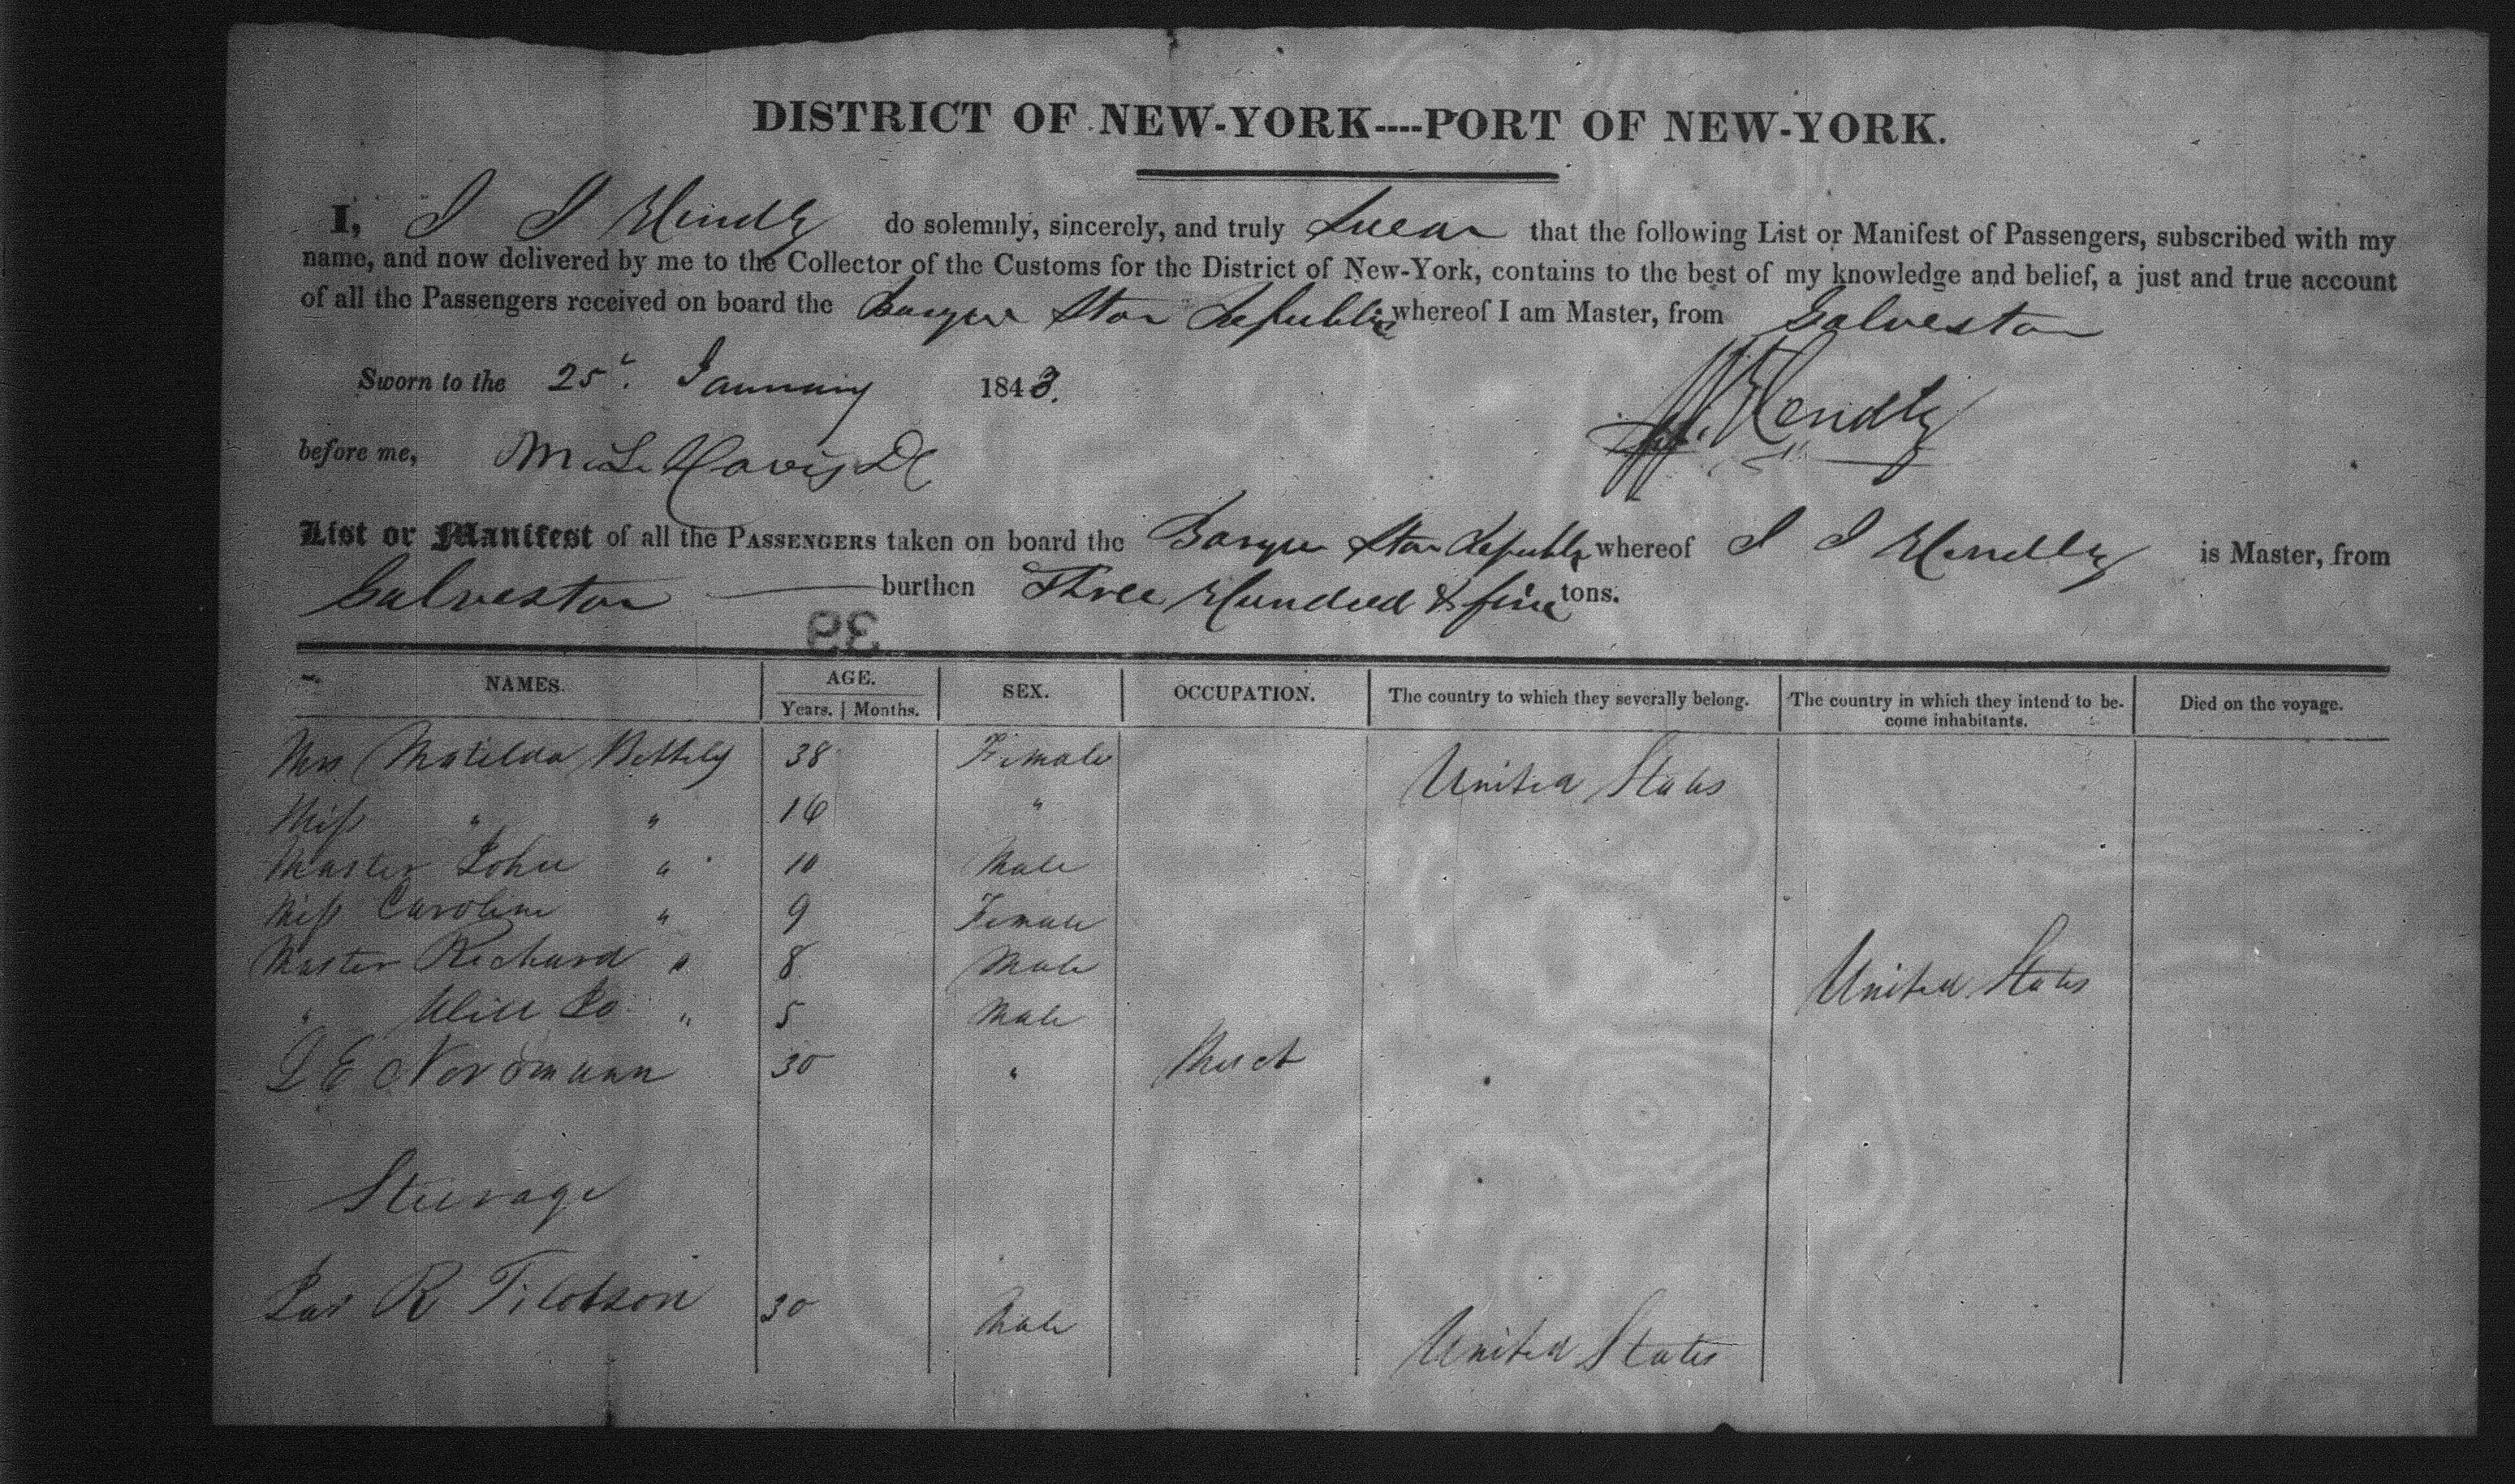 DISTRICT OF NEW-YORK----PORT OF NEW-YORK.
I, J J Hendly do solemnly, sincerely, and truly Swear that the following List or Manifest of Passengers, subscribed with my
name, and now delivered by me to the Collector of the Customs for the District of New-York, contains to the best of my knowledge and belief, a just and true account
of all the Passengers received on board the Barque Star Republic whereof I am Master, from Galveston
Sworn to the 25 January 1843. Hendly
before me, M. L. Davis DC
List or Manifest of all the PASSENGERS taken on board the Barque Star Republic whereof J J Hendly is Master, from
Galveston burthen Three Hundred & five tons.
39
NAMES. AGE. SEX. OCCUPATION. The country to which they severally belong. The country in which they intend to be- Died on the voyage.
Years. Months. come inhabitants.
Mrs Matilda 38 Female United States
Miss " " 16 "
Master John " 10 Male
Miss Caroline " 9 Female
Master Richard " 8 Male United States
" " 5 Male
E Nordmann 30 " Merct
Steerage
R Tilotson 30 Male United States